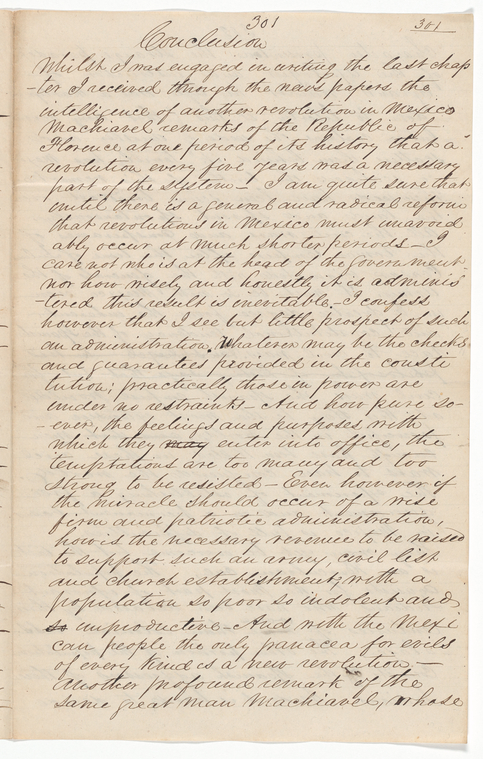 301 301
Conclusion
Whilst I was engaged in writing the last chap
-ter I received through the news papers the
intelligence of another revolution in Mexico
Machiavel remarks of the Republic of
Florence at one period of its history that a
revolution every five years was a necessary
part of the system – I am quite sure that
until there is a general and radical reform
that revolutions in Mexico must unavoid
ably occur at much shorter periods – I
care not who is at the head of the Government
nor how wisely and honestly it is adminis
-tered this result is inevitable – I confess
however that I see but little prospect of such
an administration. Whatever may be the checks
and guarantees provided in the consti
tution; practically those in power are
under no restraints – And how pure so-
-ever, the feelings and purposes with
which they may enter into office, the
temptations are too many and too
strong to be resisted – Even however if
the miracle should occur of a wise
firm and patriotic administration,
how is the necessary revenue to be raised
to support such an army, civil list
and church establishment; with a
population so poor so indolent and
so unproductive – And with the Mexi
can people the only panacea for evils
of every kind is a new revolution –
Another profound remark of the
same great man Machiavel, whose